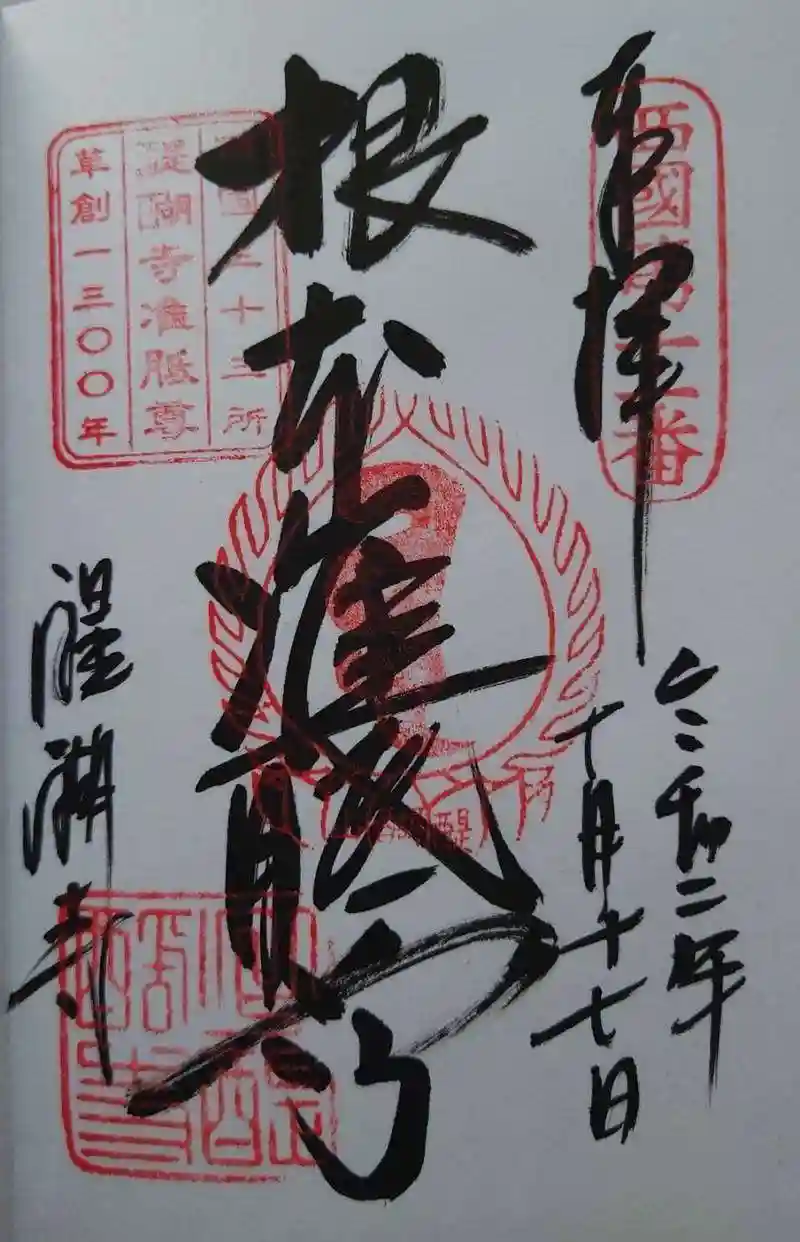 奉拝
西國第十一番
令和二年
十月十七日
根本准胝
西國三十三所
醍醐寺准胝尊
草創一三〇〇年
醍醐寺